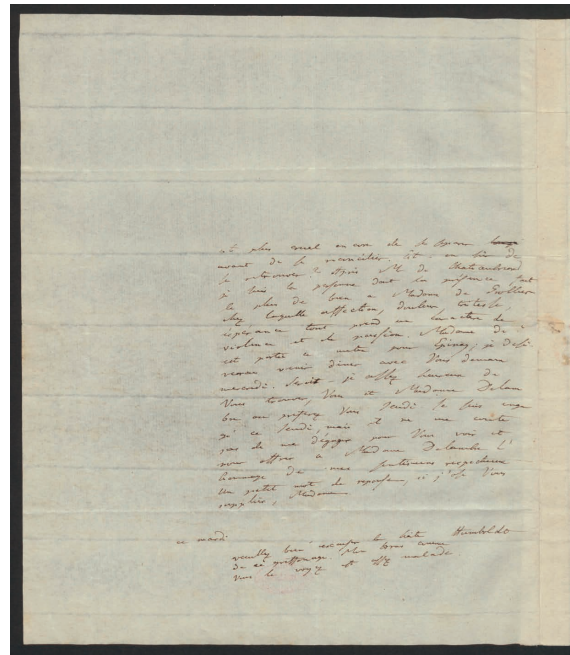 est plus cruel encore de se
avant de se reconcilier, est-on sûr de
se retrouver? Après M. de Chateaubriand
je suis la personne dont la présence fait
le plus de bien a Madame de
chez laquelle affection, douleur
esperance tout prend un caractère de
violence et de passion. Madame de
est partie ce matin pour Epinay, je
venir diner avec Vous demain
mercredi. Serait-je assez heureux de
Vous trouver, Vous et Madame Delam
bre ou préferez Vous Jeudi. Je suis engagé
ce Jeudi, mais il ne me coute
pas de me dégager pour Vous voir et
pour offrir a Madame Delambre l'
hommage de mes sentimens respectueux
Un petit mot de reponse, si j'ose Vous
supplier, Madame
ce mardi
Humboldt
veuillez bien excuser la hâte
de ce griffonage. Mon bras comme
Vous le voyez est malade